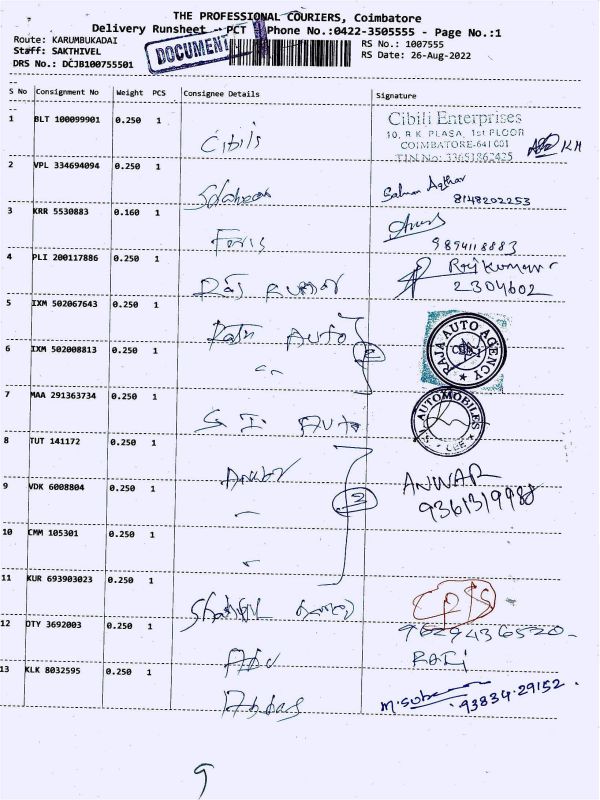 THE PROFESSIONAL COURIERS, Coimbatore
Delivery Runsheet - PCT Phone No.:0422-3505555 - Page No.:1
Route: KARUMBUKADAI
RS No.: 1007555
Staff: SAKTHIVEL
RS Date: 26-Aug-2022
DRS No.: DCJB100755501
DOCUMENT
S No Consignment No Weight PCS Consignee Details Signature
1 BLT 100099901 0.250 1 Cibils
Cibili Enterprises
10, R K PLASA, 1st FLOOR
COIMBATORE-641 001
TIN No: 33651862425
KM
2 VPL 334694094 0.250 1
Salman
8148202253
3 KRR 5530883 0.160 1 Feris
9894118883
4 PLI 200117886 0.250 1 Raj Kumar
Raj Kumar
2304602
5 IXM 502067643 0.250 1 Auto
RAJA AUTO AGENCY
CBE-1
6 IXM 502008813 0.250 1 "
2
7 MAA 291363734 0.250 1 S. I. Auto
AUTOMOBILES
CBE
8 TUT 141172 0.250 1 Anwar
ANWAR
9361319998
9 VDK 6008804 0.250 1 "
3
10 CMM 105301 0.250 1 "
11 KUR 693903023 0.250 1
9629436520
12 DTY 3692003 0.250 1 Abu
13 KLK 8032595 0.250 1 Abbas
93834.29152.
9